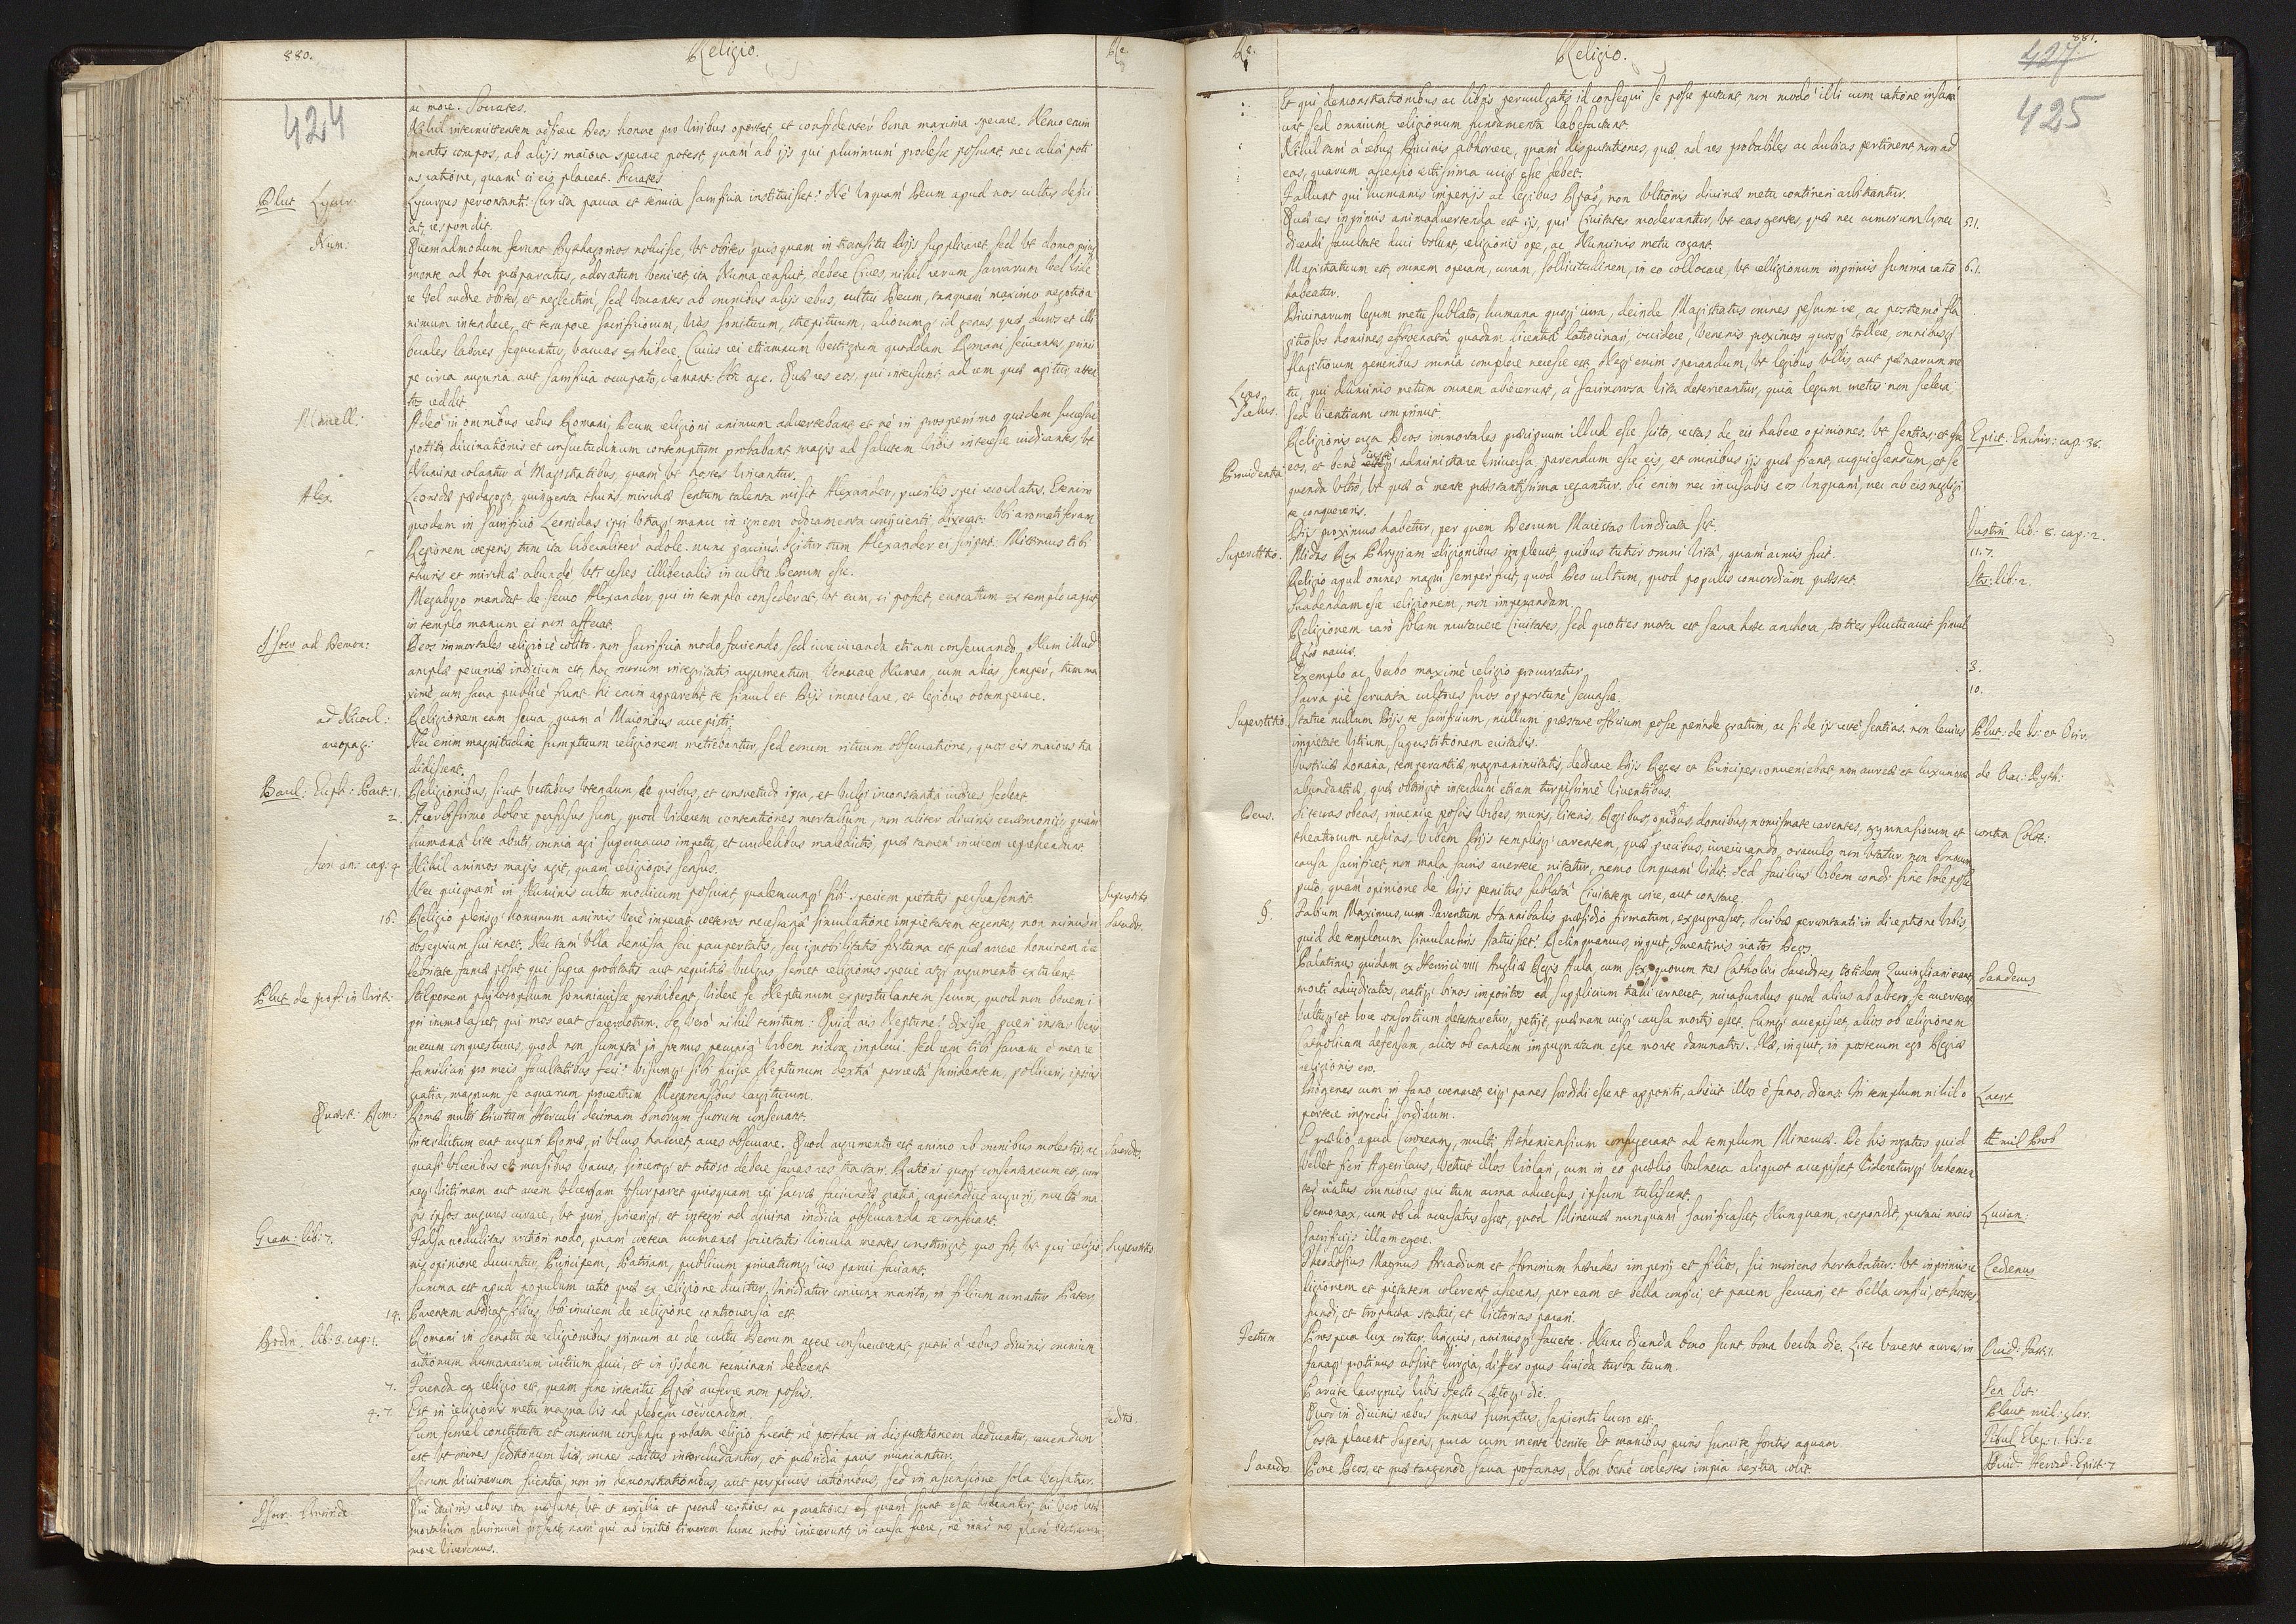 880.
Religio.
Re
424
ac more. Socrates.
Nihil intermittentem Deos honore pro viribus oportet et confidenter bona maxima sperare. Nemo enim
mentis compos, ab alijs maiora sperare potest quam ab ijs qui plurimum prodesse possunt, nec alia poti
us ratione, quam si eis placeat. Socrates
Plut Lycur:
Lycurgus percontanti: Cur ita parva et tenuia sacrificia instituisset? Ne unquam Deum apud nos cultus defici
at, respondit.
Num:
Quemadmodum ferunt Pythagoricos noluisse, ut obiter quisquam in transitu Dijs supplicaret, sed ut domo prius
mente ad hoc præparatus, adoratum veniret, ita Numa censuit, debere Cives, nihil rerum sacrarum vel vide
re vel audire obiter, et neglectim, sed vacantes ab omnibus alijs rebus, cultui Deum, tanquam maximo negotio a
nimum intendere, et tempore sacrificiorum, vias sonituum, strepituum, aliorumq id genus, quæ duros et illi
berales labores sequuntur, vacuas exhibere. Cuius rei etiamnum vestigium quoddam Romani servantes, princi
pe circa auguria aut sacrificia occupato, clamant: Hoc age. Quæ res eos, qui intersunt ad rem quæ agitur, atten
tos reddit.
Marcell:
Adeo in omnibus rebus Romani, Deum religioni animum advertebant et ne in prosperrimo quidem successu
potita divinationis et consuetudinum contemptum probabant magis ad salutem Urbis interesse iudicantes, ut
Numina colantur à Magistratibus, quam ut hostes vincantur.
Alex.
Leonidæ pædagogo, quingenta thuris, mirrhæ Centum talenta misit Alexander, puerilis spei recordatus. Etenim
quodam in sacrificio Leonidas ipsi utraq manu in ignem odoramenta conijcienti, dixerat: Ubi aromatiferam
Regionem ceperis, tum ita liberaliter adole. nunc parcius. Igitur tum Alexander ei scripsit. Mittimus tibi
thuris et mirrhæ abunde uti desies illiberalis in cultu Deorum esse.
Megabyzo mandat de servo Alexander, qui in templo consederat, ut eum, si posset, evocatum ex templo capiat,
in templo manum ei non afferat.
Isocr ad Demon:
Deos immortales religiose colito. non sacrificia modo faciendo, sed iureiuranda etiam conservando. Nam illud
amplæ pecuniæ indicium est, hoc morum integritatis argumentum. Venerare Numen, cum alias semper, tum ma
xime, cum sacra publice fiunt. sic enim apparebit te simul et Dijs immolare, et legibus obtemperare.
ad Nicocl:
Religionem eam serva, quam à Maioribus accepisti.
areopag:
Nec enim magnitudine sumptuum religionem metiebantur, sed eorum rituum observatione, quos eis maiores tra
didissent.
Barcl: Euph: Part: 1.
Religionibus, sicut vestibus utendum, de quibus, et consuetudo ipsa, et vulgi inconstantia iudices sedent
2.
Acerbissimo dolore perfusus sum, quod viderem contentiones mortalium, non aliter divinis cæremonijs, quam
humana lite abuti, omnia agi supervacuo impetu, et crudelibus maledictis, quæ tamen invicem reprehendunt.
Icon an: cap: 4.
Nihil animos magis agit, quam religionis sensus.
Nec quicquam in Numinis cultu modicum possunt, qualemcunq sibi speciem pietatis persuaserint.
Superstitio
16.
Religio plerosq hominum animis vere imperat. cæteros necessaria simulatione impietatem tegentes, non minus in
Sacerdo.
obsequium sui tenet. Nec tam ulla demissa seu paupertatis, seu ignobilitatis fortuna est quæ arcere hominem à ce
lebritate famæ possit, qui supra probitatis aut nequitiæ vulgus, semet religionis specie atq argumento extulerit
Plut de prof: in Virt:
Stilponem philosophum somniavisse perhibent, videre se Neptunum expostulantem secum, quod non bovem i
psi immolasset, qui mos erat sacerdotum. Se vero nihil territum: Quid ais Neptune? dixisse, pueri instar venis
mecum conquesturus, quod non sumpta in fænus pecunia Urbem nidore implevi. sed rem tibi sacram è mea re
familiari pro meis facultatibus feci? visumq sibi fuisse Neptunum dextra porrecta surridentem, polliceri, ipsius
gratia, magnum se aquarum proventum Megarensibus largiturum.
Quæst: Rom:
Romæ multi Divitum Herculi decimam bonorum suorum conservant.
Interdictum erat auguri Romæ, si ulcus haberet aves observare. Quod argumento est, animo ab omnibus molestijs, ac
Sacerdo.
quasi ulceribus et morsibus vacuo, sinceroq et otioso debere sacras res tractari. Rationi quoq consentaneum est, cum
neq victimam aut avem ulcerosam usurparet quisquam rei sacræ faciundæ gratia, capiendive augurij, multo ma
gis ipsos augures curare, ut puri, sinceriq, et integri ad divina indicia observanda se conferant.
Gram: lib: 7.
Falsa credulitas arctiori nodo, quam cætera humanæ societatis vincula mentes constringit, quo fit, ut qui religio
Superstitio
nis opinione ducuntur, Principem, Patriam, publicum privatumq ius parvi faciant.
Summa est apud populum ratio quæ ex religione ducitur, insidiatur coniunx marito, in filium armatur Pater,
14.
Parentem abdicat filius, ubi invicem de religione controversia est.
Bodin. lib: 3. cap: 1.
Romani in Senatu de religionibus primum ac de cultu Deorum agere consueverant quasi à rebus divinis omnium
actionum humanarum initium fieri, et in ijsdem terminari deberent.
7.
Tuenda ea religio est, quam sine interitu Rpæ auferre non possis.
4. 7.
Est in religionis metu magna vis ad plebem coercendam.
Sedito.
Cum semel constituta et omnium consensu probata religio fuerit ne posthac in disputationem deducatur, cavendum
est ut omnes seditionum viæ, omnes aditus intercludantur, et præsidia pacis muniantur.
Rerum divinarum scientia, non in demonstrationibus, aut perspicuis rationibus, sed in assensione sola versatur.
Isocr. Busirid:
Qui divinis rebus ita præsunt, ut et auxilia et poenæ certiores ac paratiores quam sunt esse videantur, hi vero vitæ
mortalium plurimum prosunt, nam qui ab initio timorem hunc nobis iniecerunt, in causa fuere, ne nos plane bestiarum
more viveremus.
Re.
Religio.
881.
427
425
Et qui demonstrationibus ac libris pervulgatis id consequi se posse putant, non modo illi cum ratione insani
unt sed omnium religionum fundamenta labefactant.
Nihil tam à rebus Divinis abhorrere, quam disputationes, quæ ad res probabiles ac dubias pertinent non ad
eas, quarum assensio certissima cuiq esse debet.
Fallunt qui humanis imperijs ac legibus Rpas, non ultionis divinæ metu contineri arbitrantur.
Quæ res inprimis animadvertenda est ijs, qui Civitates moderantur, ut eas gentes, quæ nec armorum vi, nec
5. 1.
dicendi facultate duci volunt, religionis ope, ac Numinis metu cogant.
Magistratuum est, omnem operam, curam, sollicitudinem, in eo collocare, ut religionum inprimis summa ratio
6. 1.
habeatur.
Divinarum legum metu sublato, humana quoq iura, deinde Magistratus omnes pessum ire, ac postremo fla
gitiosos homines effrenata quadam licentia latrocinari, occidere, venenis proximos quosq tollere, omnibusq
flagitiorum generibus omnia complere necesse est. Neq enim sperandum, ut legibus ullis aut poenarum me
tu, qui Numinis metum omnem abiecerunt, à facinorosa vita deterreantur, quia legum metus non scelera,
Leges
Scelus.
sed licentiam comprimit.
Religionis erga Deos immortales præcipuum illud esse scito, rectas de eis habere opiniones, ut sentias et esse
Epict: Enchir: cap: 38.
Providentia
eos, et bene iusteq administrare universa, parendum esse eis, et omnibus ijs quæ fiant, acquiescendum, et se
quenda ultro, ut quæ à mente præstantissima regantur. Sic enim nec incusabis eos unquam, nec ab eis negligi
te conquereris.
Dijs proximus habetur, per quem Deorum Maiestas vindicata sit.
Justin lib: 8. cap: 2.
Superstitio.
Midas Rex Phrygiam religionibus implevit, quibus tutior omni vita, quam armis fuit.
11. 7.
Religio apud omnes magni semper fuit, quod Deo cultum, quod populis concordiam præstet.
lib: 2.
Suadendam esse religionem, non imperandam.
Religionem raro solam mutavere Civitates, sed quoties mota est sacra hæc anchora, toties fluctuavit simul
Rpæ navis.
Exemplo ac Verbo maxime religio procuratur
3.
Sacra pie servata cultores suos opportune servasse.
10.
Superstitio.
Statue nullum Dijs te sacrificium, nullum præstare officium posse perinde gratum, ac si de ijs recte sentias. non levius
Plut: de Is: et Osir.
impietate vitium, superstitionem evitabis.
Justitiæ donaria, temperantiæ, magnanimitatis, dedicare Dijs Reges et Principes conveniebat non aureæ et luxuriosæ
de Orac: Pyth:
abundantiæ, quæ obtingit interdum etiam turpissime viventibus.
Deus.
Si terras obeas, invenire possis Urbes, muris, literis, Regibus, opibus, domibus, nomismate carentes, gymnasiorum et
contra Colot:
theatrorum nescias. Urbem Dijs templisq carentem, quæ precibus, iureiurando, oraculo non utatur, non bonorum
causa sacrificet, non mala sacris avertere nitatur, nemo unquam vidit. Sed facilius Urbem condi sine solo posse
puto, quam opinione de Dijs penitus sublata Civitatem coire, aut constare.
§.
Fabium Maximus, cum Tarentum Hannibalis præsidio firmatum, expugnasset, scribæ percontanti in direptione Urbis,
quid de templorum simulachris statuisset? Relinquamus, inquit, Tarentinis iratos Deos.
Palatinus quidam ex Henrici VIII Angliæ Regis Aula, cum sex quorum tres Catholici Sacerdotes totidem Zuingliani erant
Sanderus
morti adiudicatos, ratiq binos impositos ad supplicium trahi cerneret, mirabundus quod alius ab altero se averteret
vultuq et voce consortium detestaretur, petijt, quænam cuiq causa mortis esset. Cumq accepisset, alios ob religionem
Catholicam defensam, alios ob eandem impugnatam esse morte damnatos. At, inquit, in posterum ego Regiæ
religionis ero.
Diogenes cum in fano coenaret, eiq panes sordidi essent appositi, abiecit illos è fano, dicens: In templum nihil o
Laert
portere ingredi sordidum.
E prælio apud Coroneam, multi Atheniensium confugerant ad templum Minervæ. De his rogatus quid
Æmil Prob
vellet fieri Agesilaus, vetuit illos violari, cum in eo prælio vulnera aliquot accepisset videreturq vehemen
ter iratus omnibus qui tum arma adversus ipsum tulissent.
Demonax, cum ob id accusatus esset, quod Minervæ nunquam sacrificasset, Nunquam, respondit, putavi meis
Lucian:
sacrificijs illam egere.
Theodosius Magnus Arcadium et Honorium hæredes imperij et filios, sic moriens hortabatur: Ut inprimis re
Cedrenus
ligionem et pietatem colerent asserens, per eam et bella confici et pacem servari et bella confici, et hostes
fundi, et trophæa statui, et victorias parari.
Festum
Prospera lux oritur. linguis, animisq favete. Nunc dicenda bono sunt bona verba die. Lite vacent aures, in
Ovid: Fast: 1.
sanaq protinus absint iurgia, differ opus livida turba tuum.
Parcite lacrymis Urbis Festo Lætoq die.
Sen Oct:
Quod in divinis rebus sumas sumptus, sapienti lucro est.
Plaut mil: glor.
Casta placent superis, pura cum mente venite Et manibus puris sumite fontis aquam
Tibul Eleg: 1. lib: 2
Sacerdo.
Pone Deos, et quæ tangendo sacra profanas, Non bene coelestes impia dextra colit.
Ovid: Heroid: Epist: 7